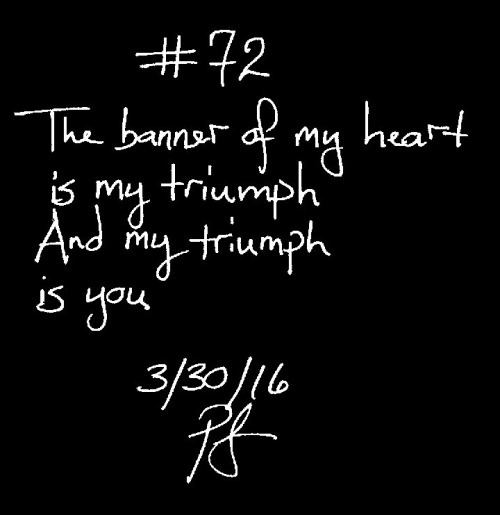 #72
The banner of my heart
is my triumph
And my triumph
is you
3/30/16